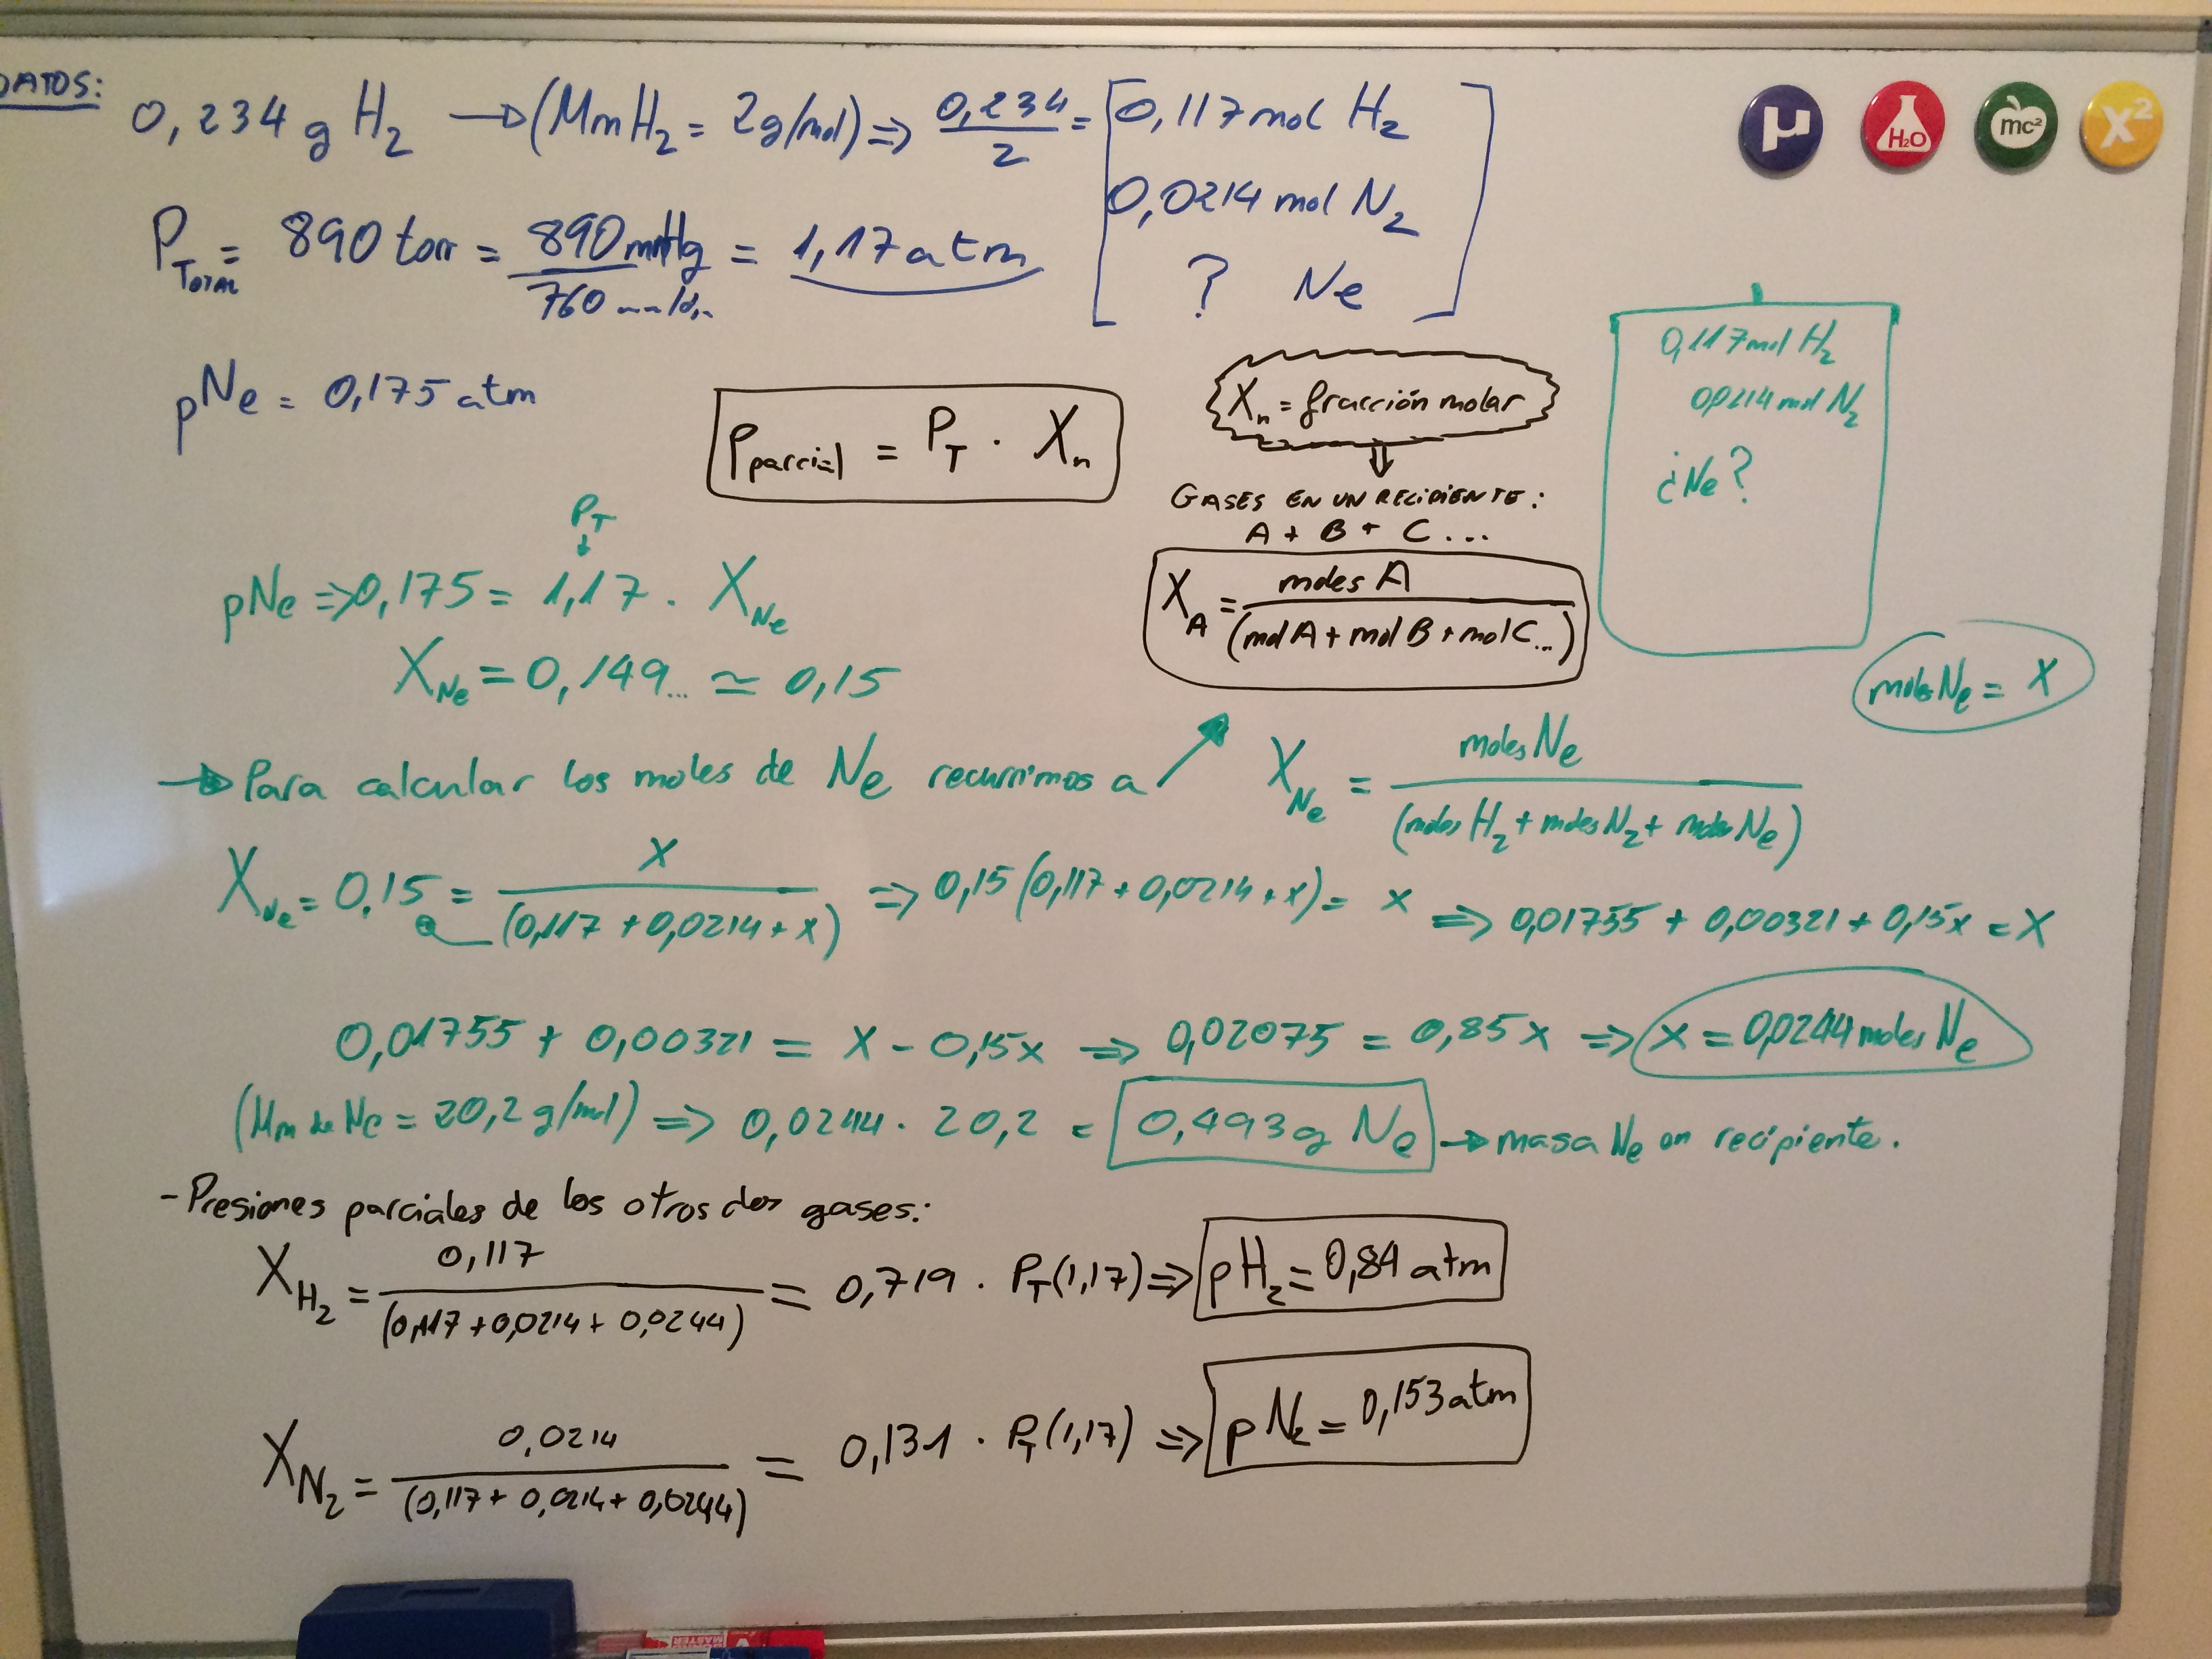 DATOS:
0,234 g H₂ → (Mm H₂ = 2g/mol) ⇒ 0,234/2 = 0,117 mol H₂
0,0214 mol N₂
? Ne
P_TOTAL = 890 torr = 890 mmHg / 760 mmHg = 1,17 atm
pNe = 0,175 atm
P_parcial = P_T · X_n
X_n = fracción molar
⇓
GASES EN UN RECIPIENTE:
A + B + C ...
X_A = moles A / (mol A + mol B + mol C...)
0,117 mol H₂
0,0214 mol N₂
¿Ne?
moles Ne = X
P_T
↓
pNe ⇒ 0,175 = 1,17 · X_Ne
X_Ne = 0,149... ≃ 0,15
→ Para calcular los moles de Ne recurrimos a ↗
X_Ne = moles Ne / (moles H₂ + moles N₂ + moles Ne)
X_Ne = 0.15 = x / (0,117 + 0,0214 + x) ⇒ 0,15 (0,117 + 0,0214 + x) = x ⇒ 0,01755 + 0,00321 + 0,15x = X
0,01755 + 0,00321 = x - 0,15x ⇒ 0,02075 = 0,85x ⇒ x = 0,0244 moles Ne
(Mm de Ne = 20,2 g/mol) ⇒ 0,0244 · 20,2 = 0,493 g Ne → masa Ne en recipiente.
- Presiones parciales de los otros dos gases:
X_H₂ = 0,117 / (0,117 + 0,0214 + 0,0244) = 0,719 · P_T (1,17) ⇒ pH₂ = 0,84 atm
X_N₂ = 0,0214 / (0,117 + 0,0214 + 0,0244) = 0,131 · P_T (1,17) ⇒ pN₂ = 0,153 atm
μ
H₂O
mc²
X²
MASTER